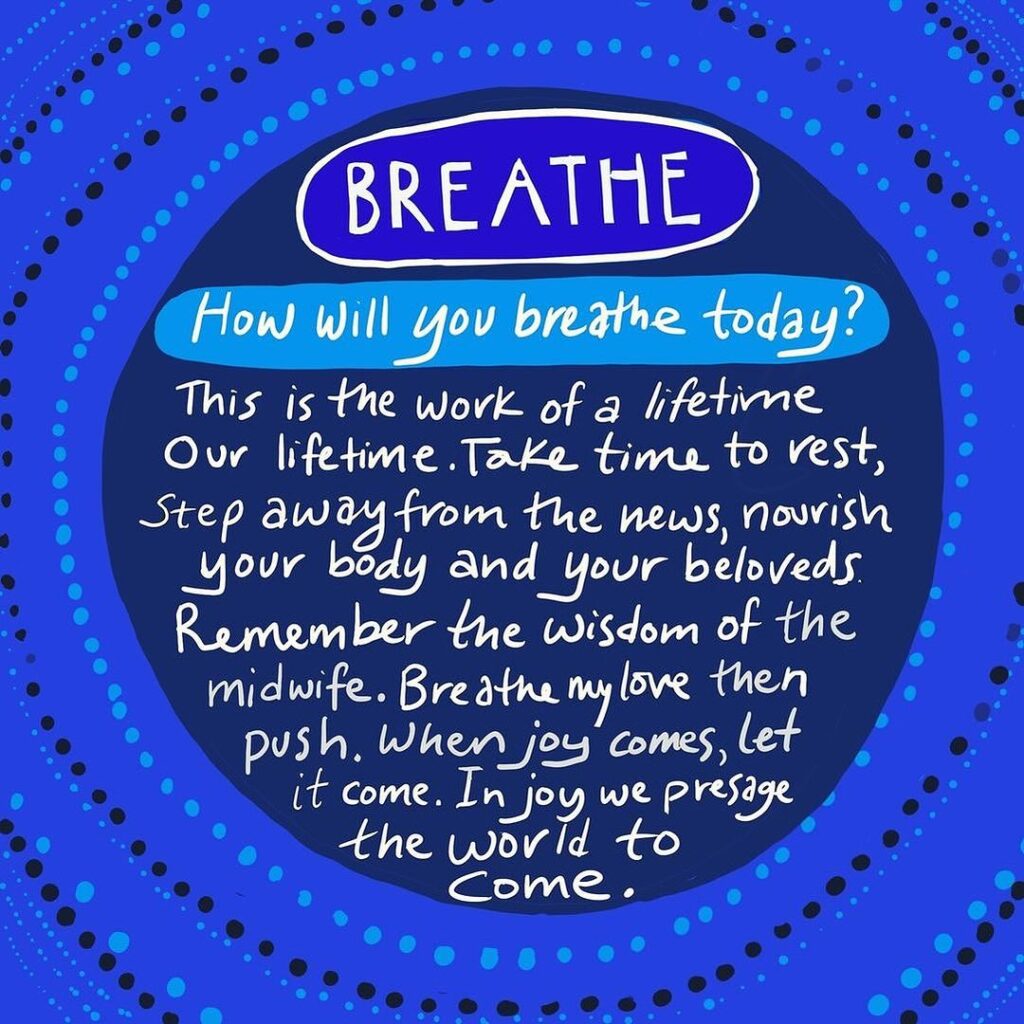 BREATHE
How will you breathe today?
This is the work of a lifetime
Our lifetime. Take time to rest,
Step away from the news, nourish
your body and your beloveds.
Remember the wisdom of the
midwife. Breathe my love then
push. When joy comes, let
it come. In joy we presage
the world to
come.